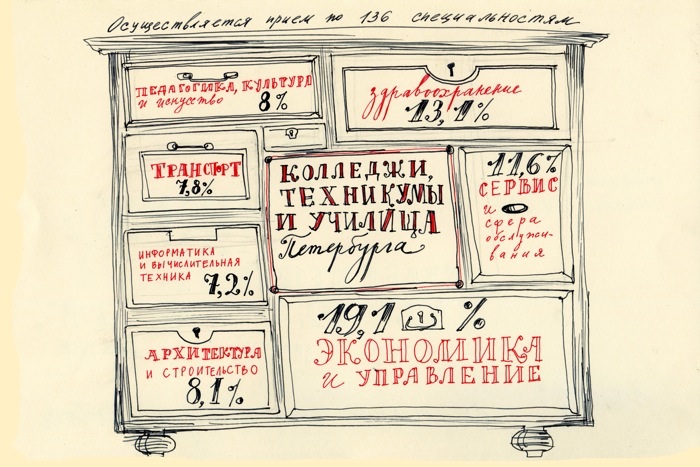 Осуществляется прием по 136 специальностям
ПЕДАГОГИКА, КУЛЬТУРА
и искусство 8%
здравоохранение
13,1%
ТРАНСПОРТ
7,8%
КОЛЛЕДЖИ,
ТЕХНИКУМЫ
И УЧИЛИЩА
Петербурга
11,6%
СЕРВИС
и
сфера
обслужи-
вания
ИНФОРМАТИКА
И ВЫЧИСЛИТЕЛЬНАЯ
ТЕХНИКА 7,2%
19,1 %
ЭКОНОМИКА
И УПРАВЛЕНИЕ
АРХИТЕКТУРА
И СТРОИТЕЛЬСТВО
8,1%